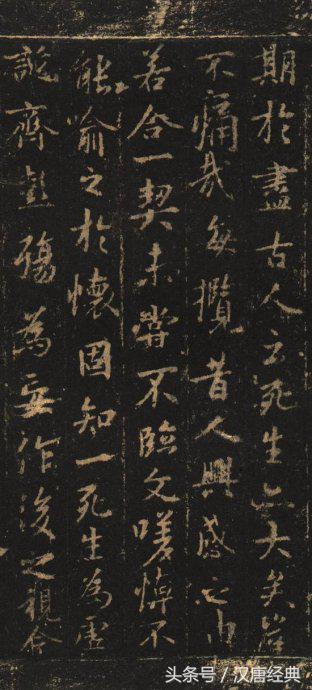 期於盡古人云死生亦大矣豈
不痛哉每攬昔人興感之由
若合一契未嘗不臨文嗟悼不
能喻之於懷固知一死生為虛
誕齊彭殤為妄作後之視今
头条号 / 汉唐经典